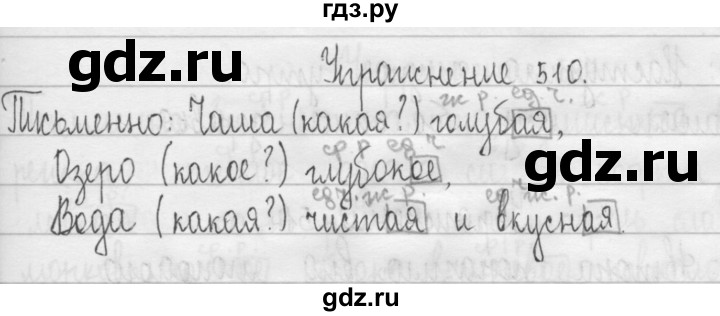 гдз.ру
gdz.ru gdz.ru
Упражнение 510.
ж р. ед. ч.
Письменно: Чаша (какая?) голубая,
ср р ед ч
Озеро (какое?) глубокое,
ед ч. ж. р. ед ч ж. р.
Вода (какая?) чистая и вкусная.
gdz.ru gdz.ru
gdz.ru